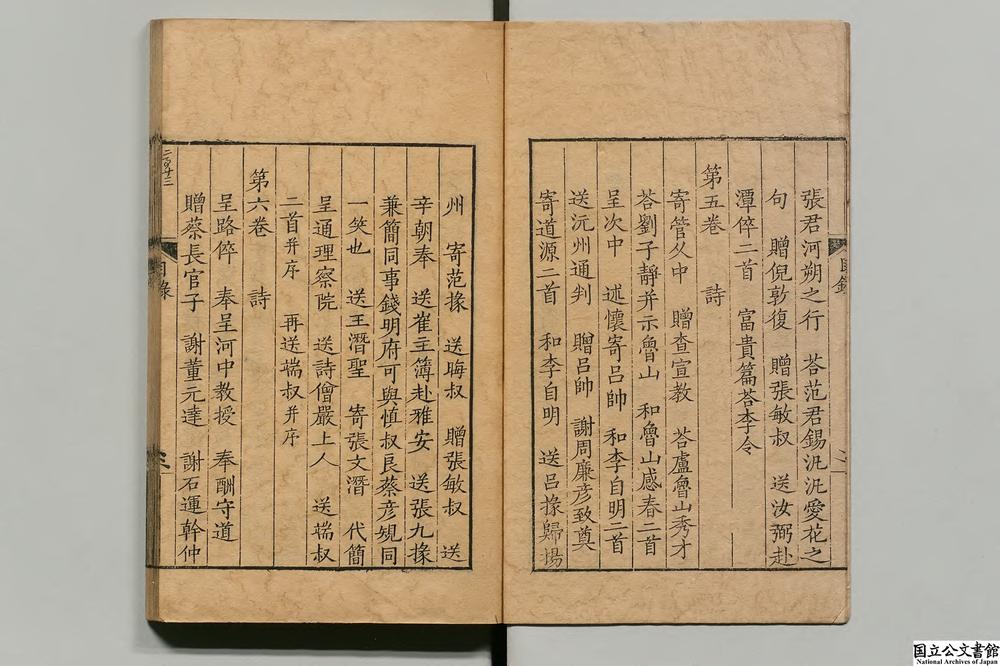 張君河朔之行　荅范君錫汎汎愛花之
句　贈倪敦復　贈張敏叔　送汝弼赴
潭倅二首　富貴篇荅李令
第五卷　詩
寄管夂中　贈查宣教　荅盧魯山秀才
荅劉子靜并示魯山　和魯山感春二首
呈次中　述懷寄呂帥　和李自明二首
送沅州通判　贈呂帥　謝周廉彥致奠
寄道源二首　和李自明　送呂掾歸揚
目錄
州　寄范掾　送晦叔　贈張敏叔　送
辛朝奉　送崔主簿赴雅安　送張九掾
兼簡同事錢明府可與慎叔良蔡彥規同
一笑也　送王潛聖　寄張文潛　代簡
呈通理察院　送詩僧嚴上人　送端叔
二首并序　再送端叔并序
第六卷　詩
呈路倅　奉呈河中教授　奉酬守道
贈蔡長官子　謝董元達　謝石運幹仲
目錄
国立公文書館
National Archives of Japan